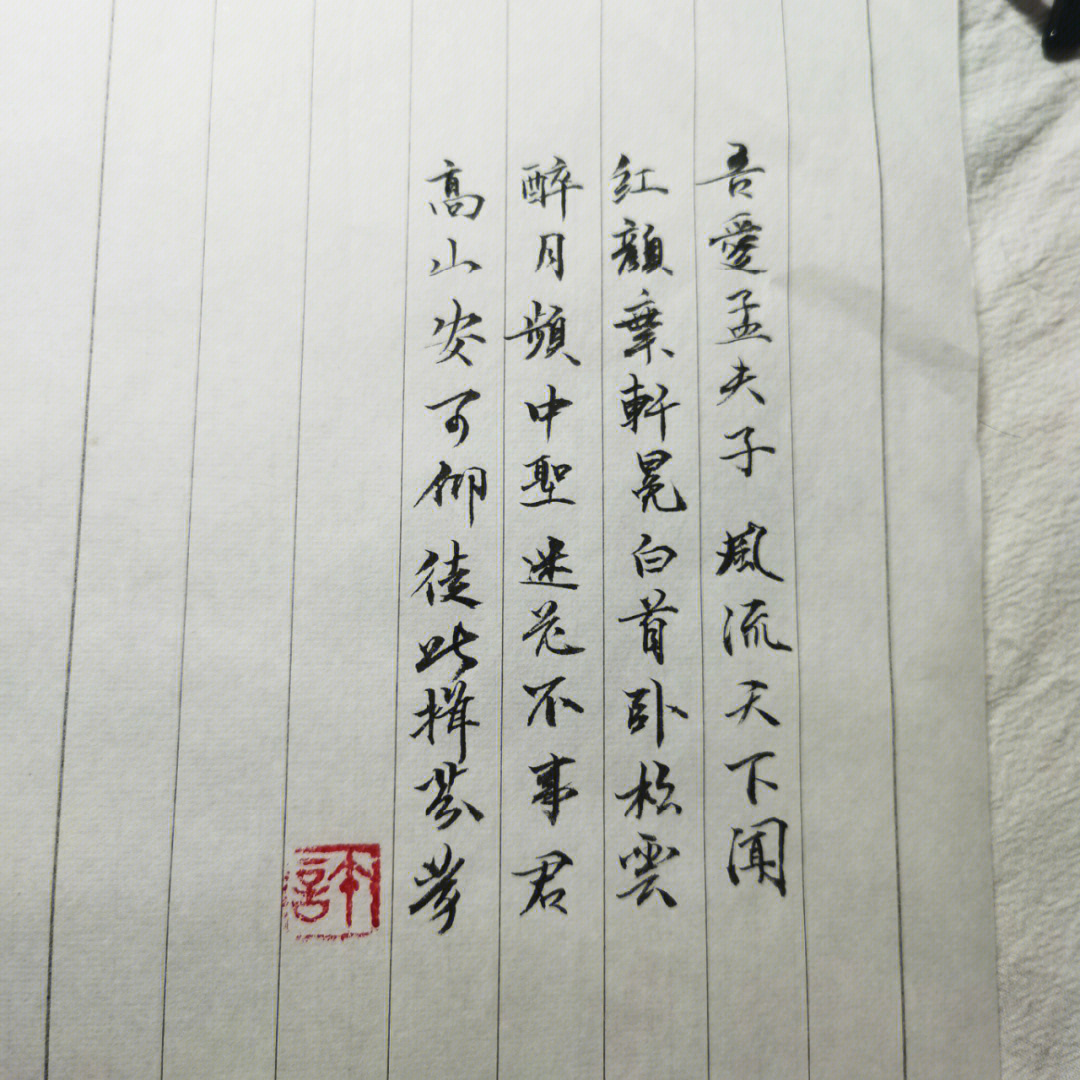 吾愛孟夫子風流天下聞
紅顏棄軒冕白首卧松雲
醉月頻中聖迷花不事君
高山安可仰徒此揖芬芳